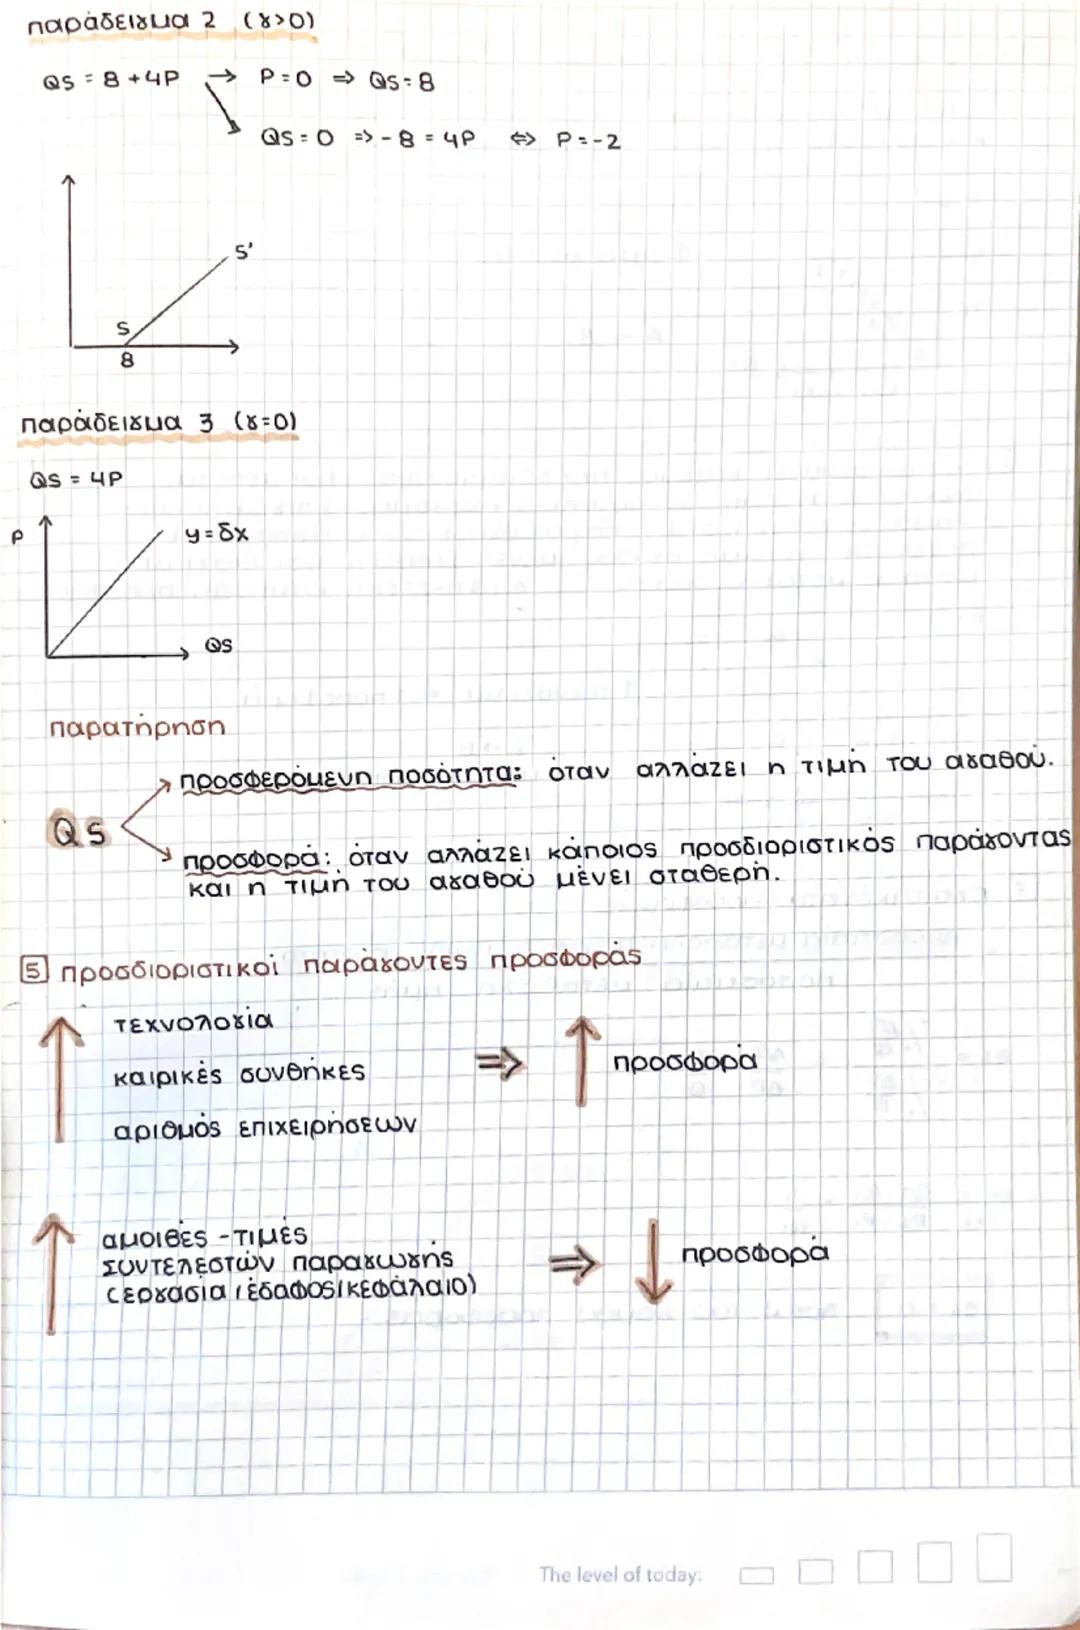 παράδειγμα 2 (γ>0)
QS = 8 + 4P → P = 0 ⇒ QS = 8
QS = 0 ⇒ - 8 = 4P ⇔ P = -2
S'
S
8
παράδειγμα 3 (γ=0)
QS = 4P
P
y = δx
QS
παρατήρηση
προσφερόμενη ποσότητα: όταν αλλάζει η τιμή του αγαθού.
QS
προσφορά: όταν αλλάζει κάποιος προσδιοριστικός παράγοντας
και η τιμή του αγαθού μένει σταθερή.
5 προσδιοριστικοί παράγοντες προσφοράς
τεχνολογία
καιρικές συνθήκες ⇒ προσφορά
αριθμός επιχειρήσεων
αμοιβές - τιμές
συντελεστών παραγωγής ⇒ προσφορά
(εργασία, έδαφος, κεφάλαιο)
The level of today: